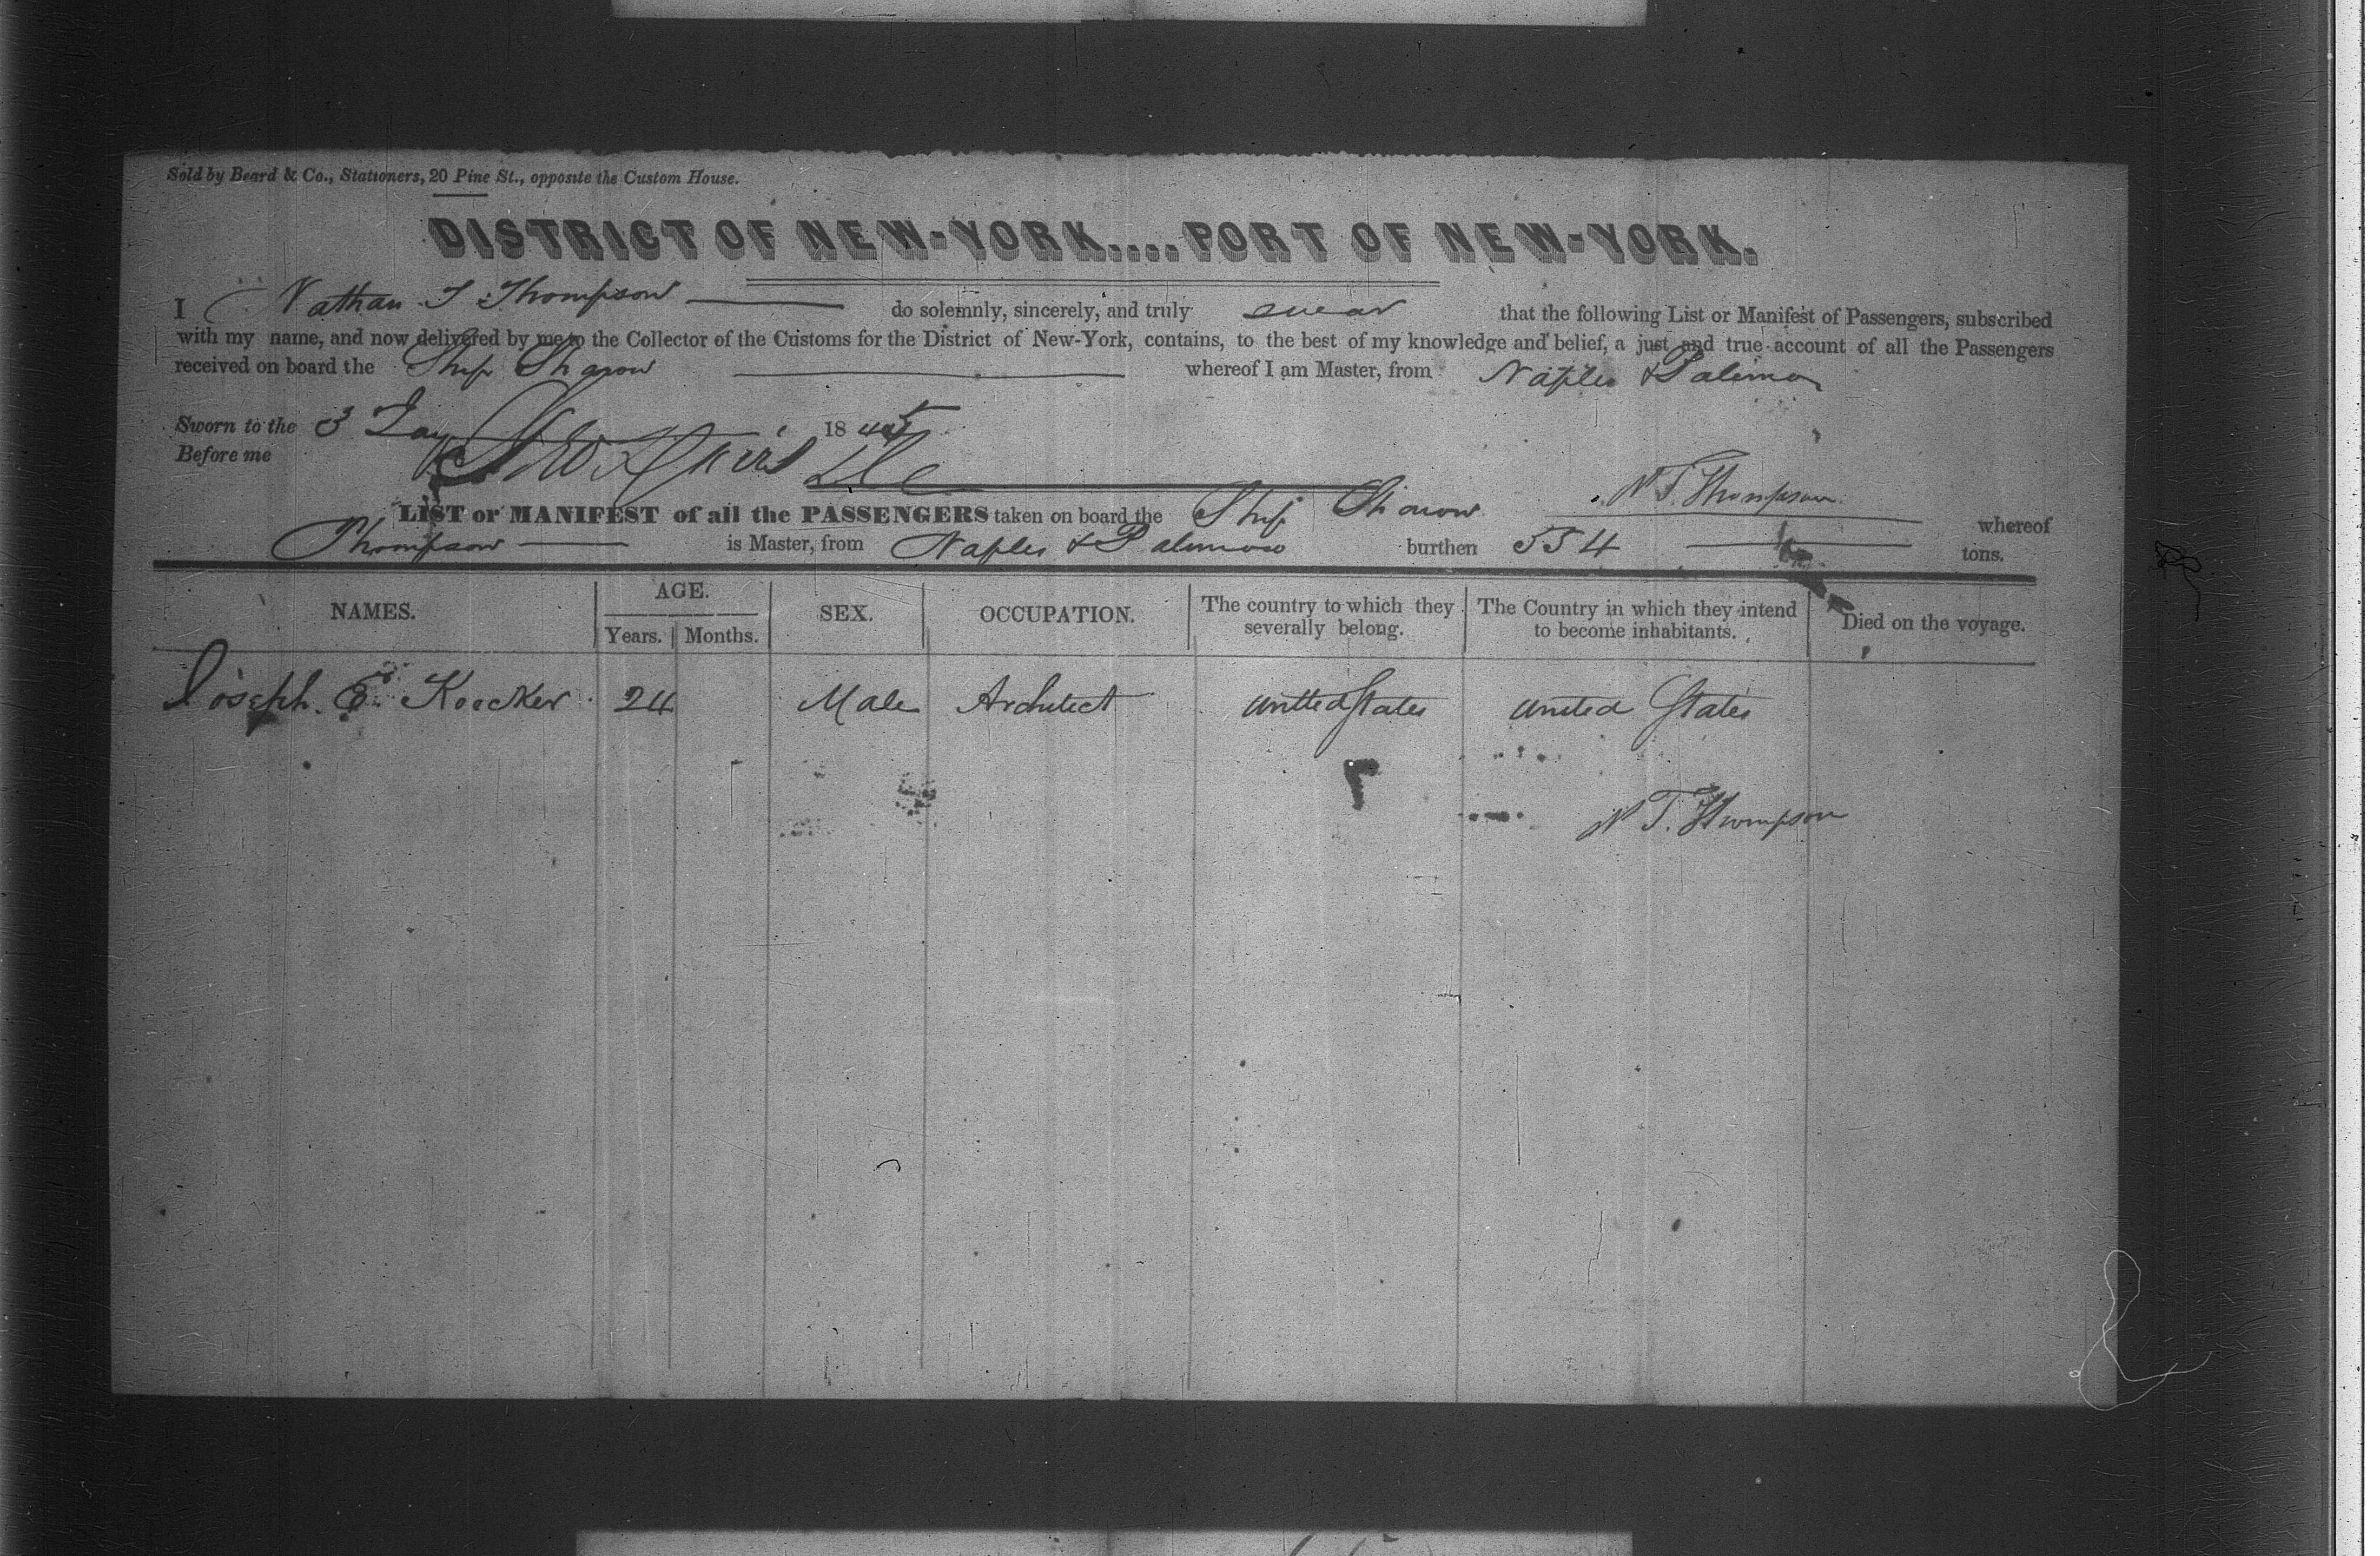 Sold by Beard & Co., Stationers, 20 Pine St., opposite the Custom House.
DISTRICT OF NEW-YORK....PORT OF NEW-YORK.
I Nathan T Thompson do solemnly, sincerely, and truly swear that the following List or Manifest of Passengers, subscribed
with my name, and now delivered by me to the Collector of the Customs for the District of New-York, contains, to the best of my knowledge and belief, a just and true account of all the Passengers
received on board the Ship Sharon whereof I am Master, from Naples & Palermo
Sworn to the 3 Day 1845
Before me
N T. Thompson
LIST or MANIFEST of all the PASSENGERS taken on board the Ship Sharon whereof
Thompson is Master, from Naples & Palermo burthen 554 tons.
NAMES. AGE. Years. Months. SEX. OCCUPATION. The country to which they severally belong. The Country in which they intend to become inhabitants. Died on the voyage.
Joseph E Koecker 24 Male Architect United States United States
N T. Thompson